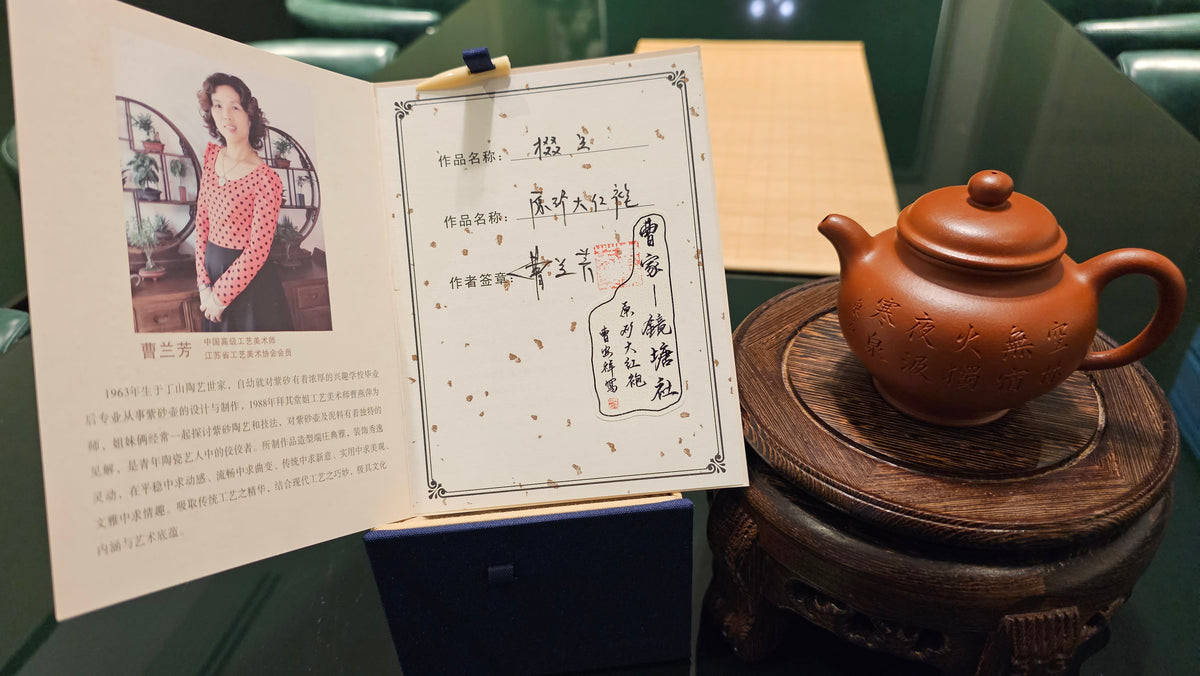 曹兰芳
中国高级工艺美术师
江苏省工艺美术协会会员
1963年生于丁山陶艺世家，自幼就对紫砂有着浓厚的兴趣学校毕业
后专业从事紫砂壶的设计与制作，1988年拜其堂姐工艺美术师曹燕萍为
师，姐妹俩经常一起探讨紫砂陶艺和技法，对紫砂壶及泥料有着独特的
见解，是青年陶瓷艺人中的佼佼者。所制作品造型端庄典雅，装饰秀逸
灵动，在平稳中求动感、流畅中求曲变、传统中求新意、实用中求美观、
文雅中求情趣。吸取传统工艺之精华，结合现代工艺之巧妙，极具文化
内涵与艺术底蕴。
作品名称：掇
作品名称：原矿大红袍
作者签章：曹兰芳
曹家一镜塘社
原矿大红袍
空林
無宿
火獨
夜汲
寒泉